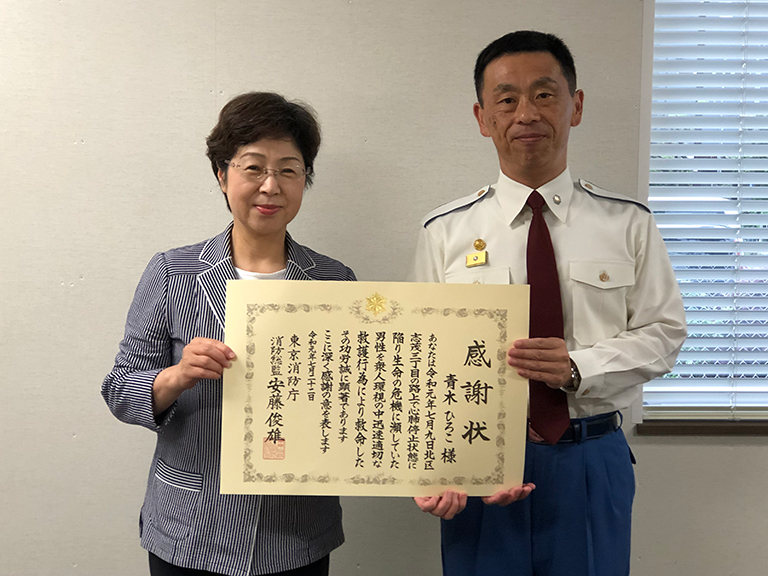 感謝状
青木ひろこ 様
あなたは令和元年七月九日北区
志茂三丁目の路上で心肺停止状態に
陥り生命の危機に瀕していた
男性を衆人環視の中迅速適切な
救護行為により救命した
その功労誠に顕著であります
ここに深く感謝の意を表します
令和元年七月二十二日
東京消防庁
消防総監 安藤俊雄